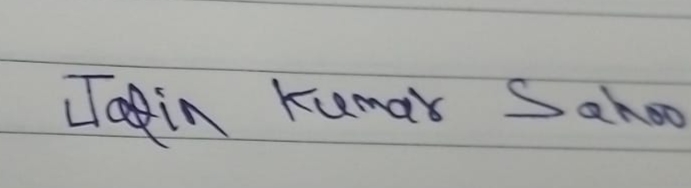 Jatin Kumar Sahoo